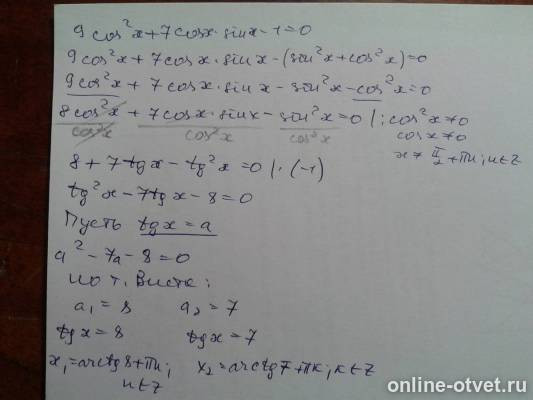 9cos²x+7cosx·sinx-1=0
9cos²x+7cosx·sinx-(sin²x+cos²x)=0
9cos²x+7cosx·sinx-sin²x-cos²x=0
8cos²x/cos²x + 7cosx·sinx/cos²x - sin²x/cos²x =0 |: cos²x≠0
cosx≠0
x≠π/2+πn; n∈Z
8+7tgx-tg²x=0 |·(-1)
tg²x-7tgx-8=0
Пусть tgx=a
a²-7a-8=0
по т. Виета:
a₁=8 a₂=7
tgx=8 tgx=7
x₁=arctg8+πn; x₂=arctg7+πk; k∈Z
n∈Z
online-otvet.ru